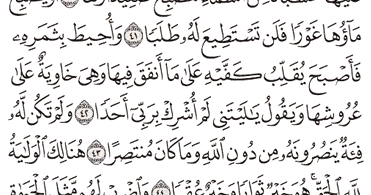 مَآؤُهَا غَوۡرٗا فَلَن تَسۡتَطِيعَ لَهُۥ طَلَبٗا ٤١ وَأُحِيطَ بِثَمَرِهِۦ
فَأَصۡبَحَ يُقَلِّبُ كَفَّيۡهِ عَلَىٰ مَآ أَنفَقَ فِيهَا وَهِيَ خَاوِيَةٌ عَلَىٰ
عُرُوشِهَا وَيَقُولُ يَٰلَيۡتَنِي لَمۡ أُشۡرِكۡ بِرَبِّيٓ أَحَدٗا ٤٢ وَلَمۡ تَكُن لَّهُۥ
فِئَةٞ يَنصُرُونَهُۥ مِن دُونِ ٱللَّهِ وَمَا كَانَ مُنتَصِرًا ٤٣ هُنَالِكَ ٱلۡوَلَٰيَةُ